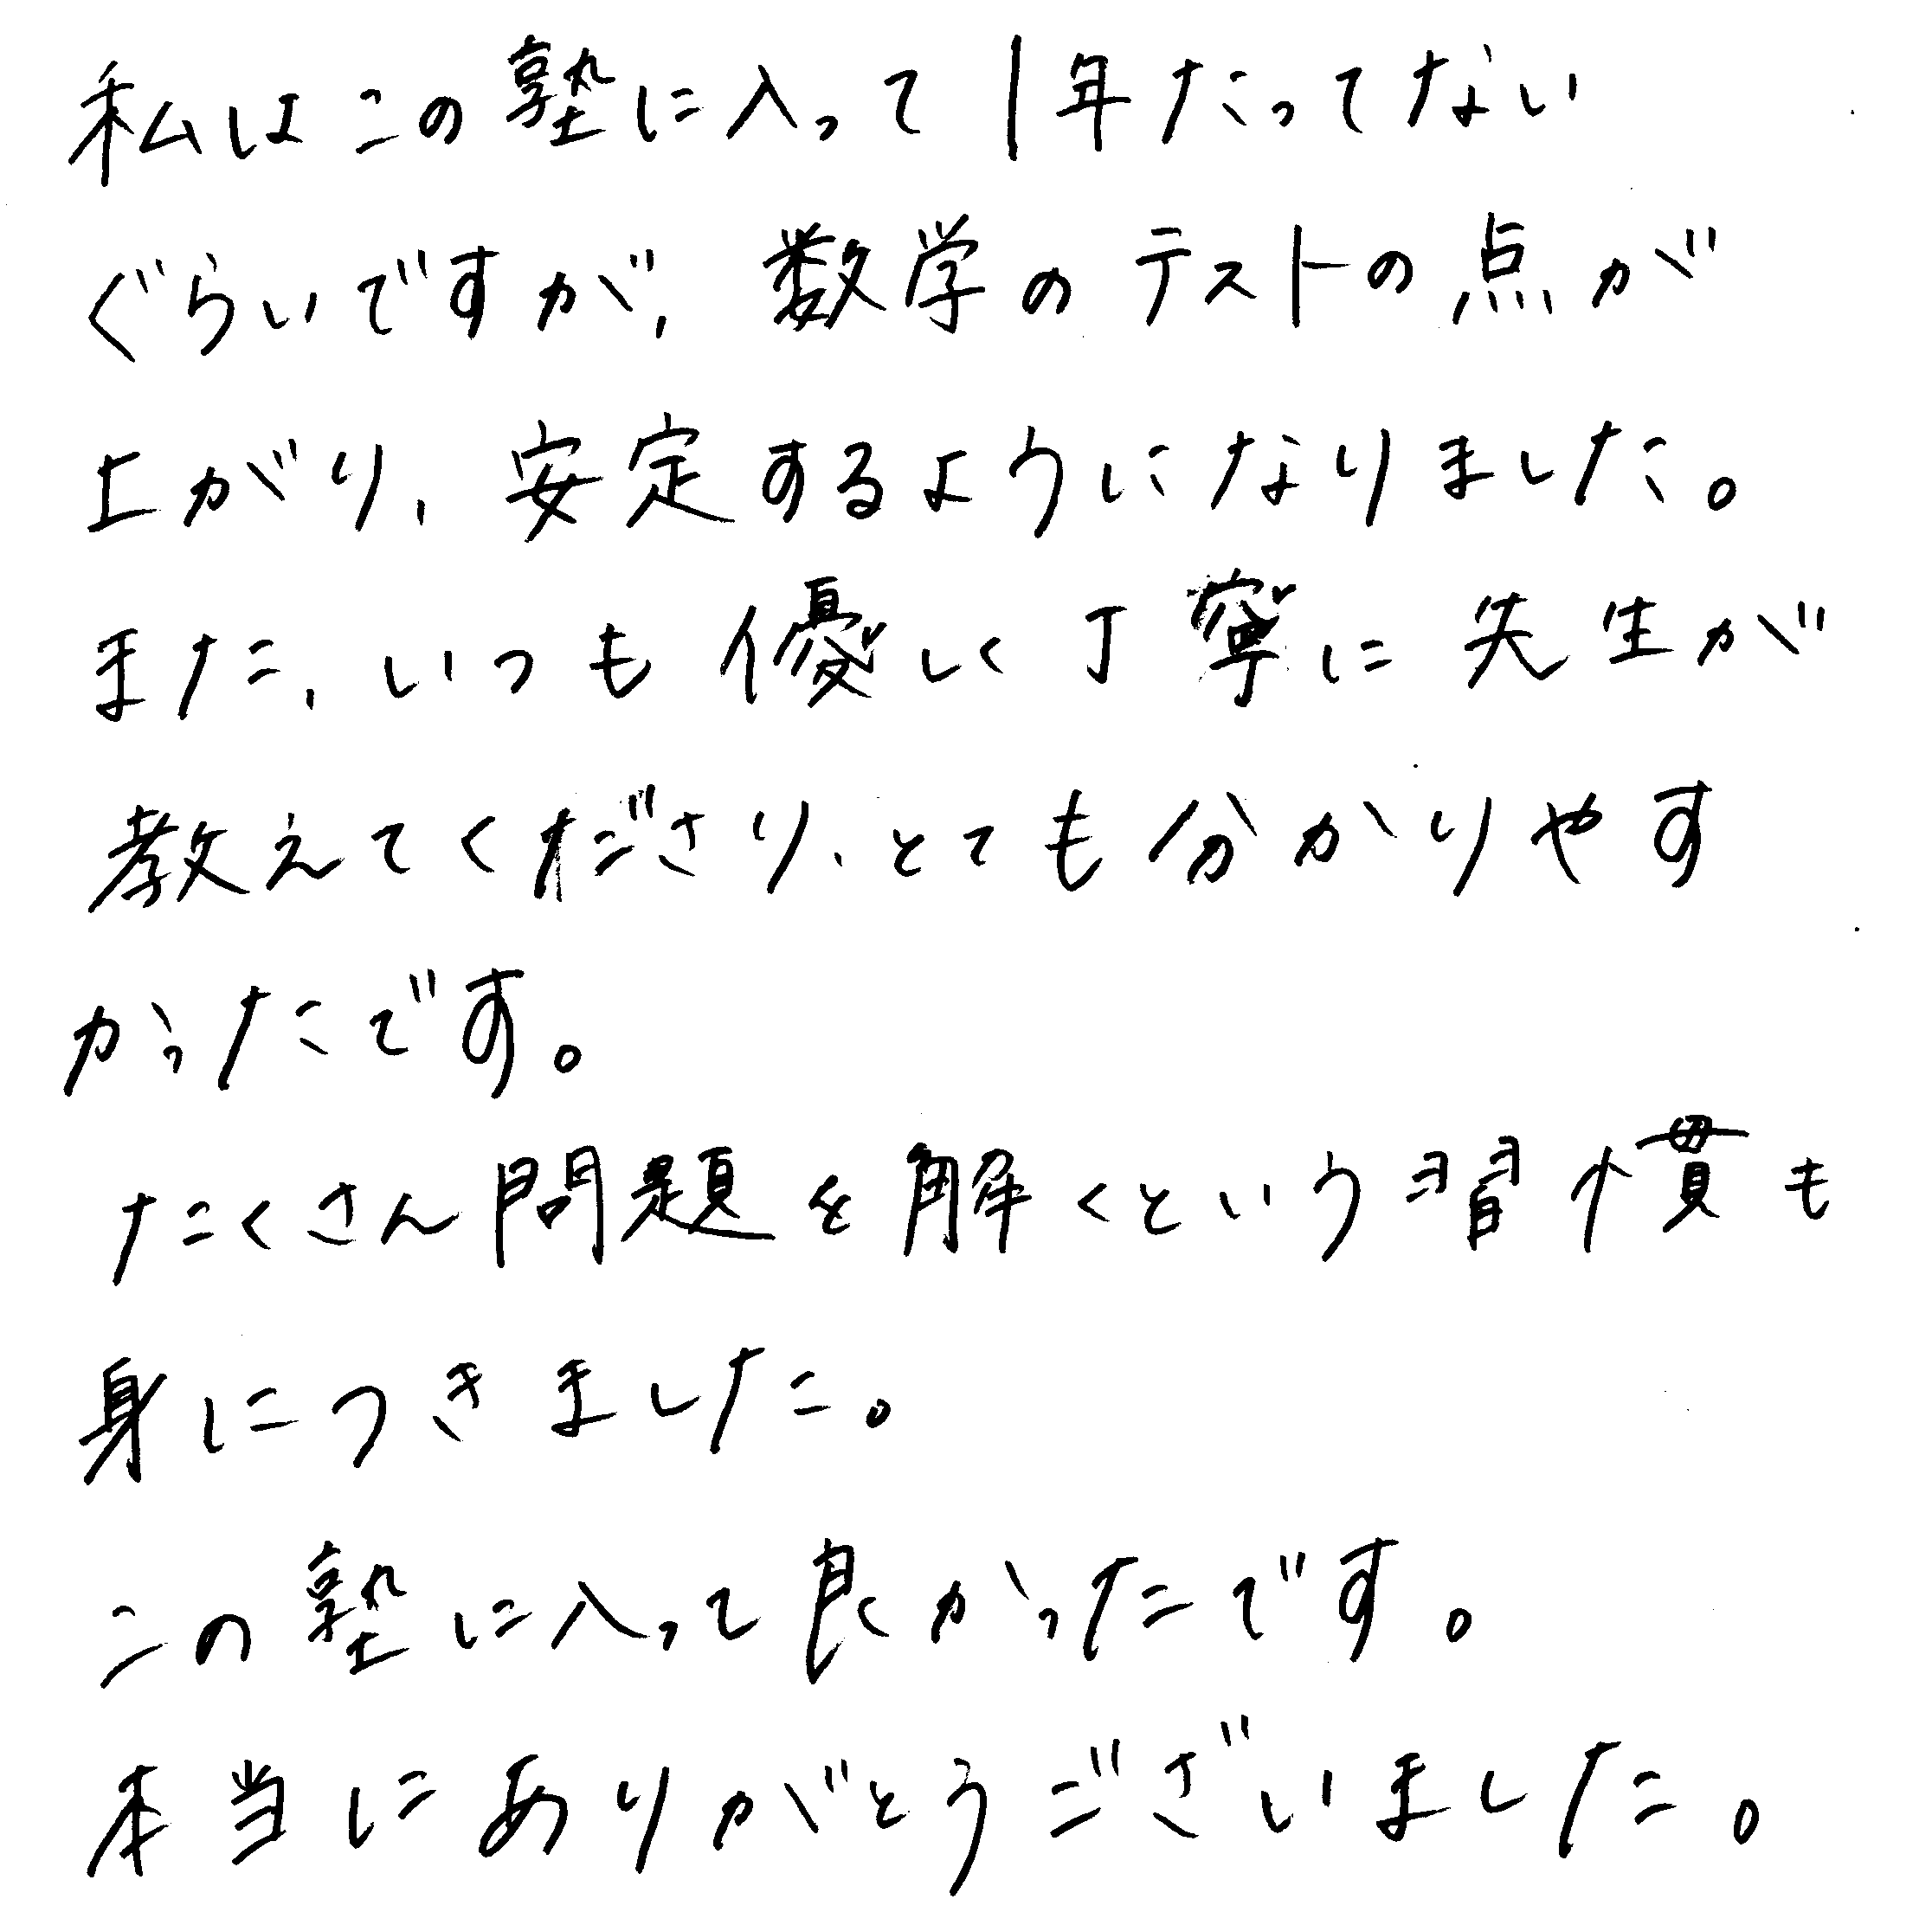 私はこの塾に入って1年たってない
ぐらいですが、数学のテストの点が
上がり、安定するようになりました。
また、いつも優しく丁寧に先生が
教えてくださり、とても分かりやす
かったです。
たくさん問題を解くという習慣も
身につきました。
この塾に入って良かったです。
本当にありがとうございました。